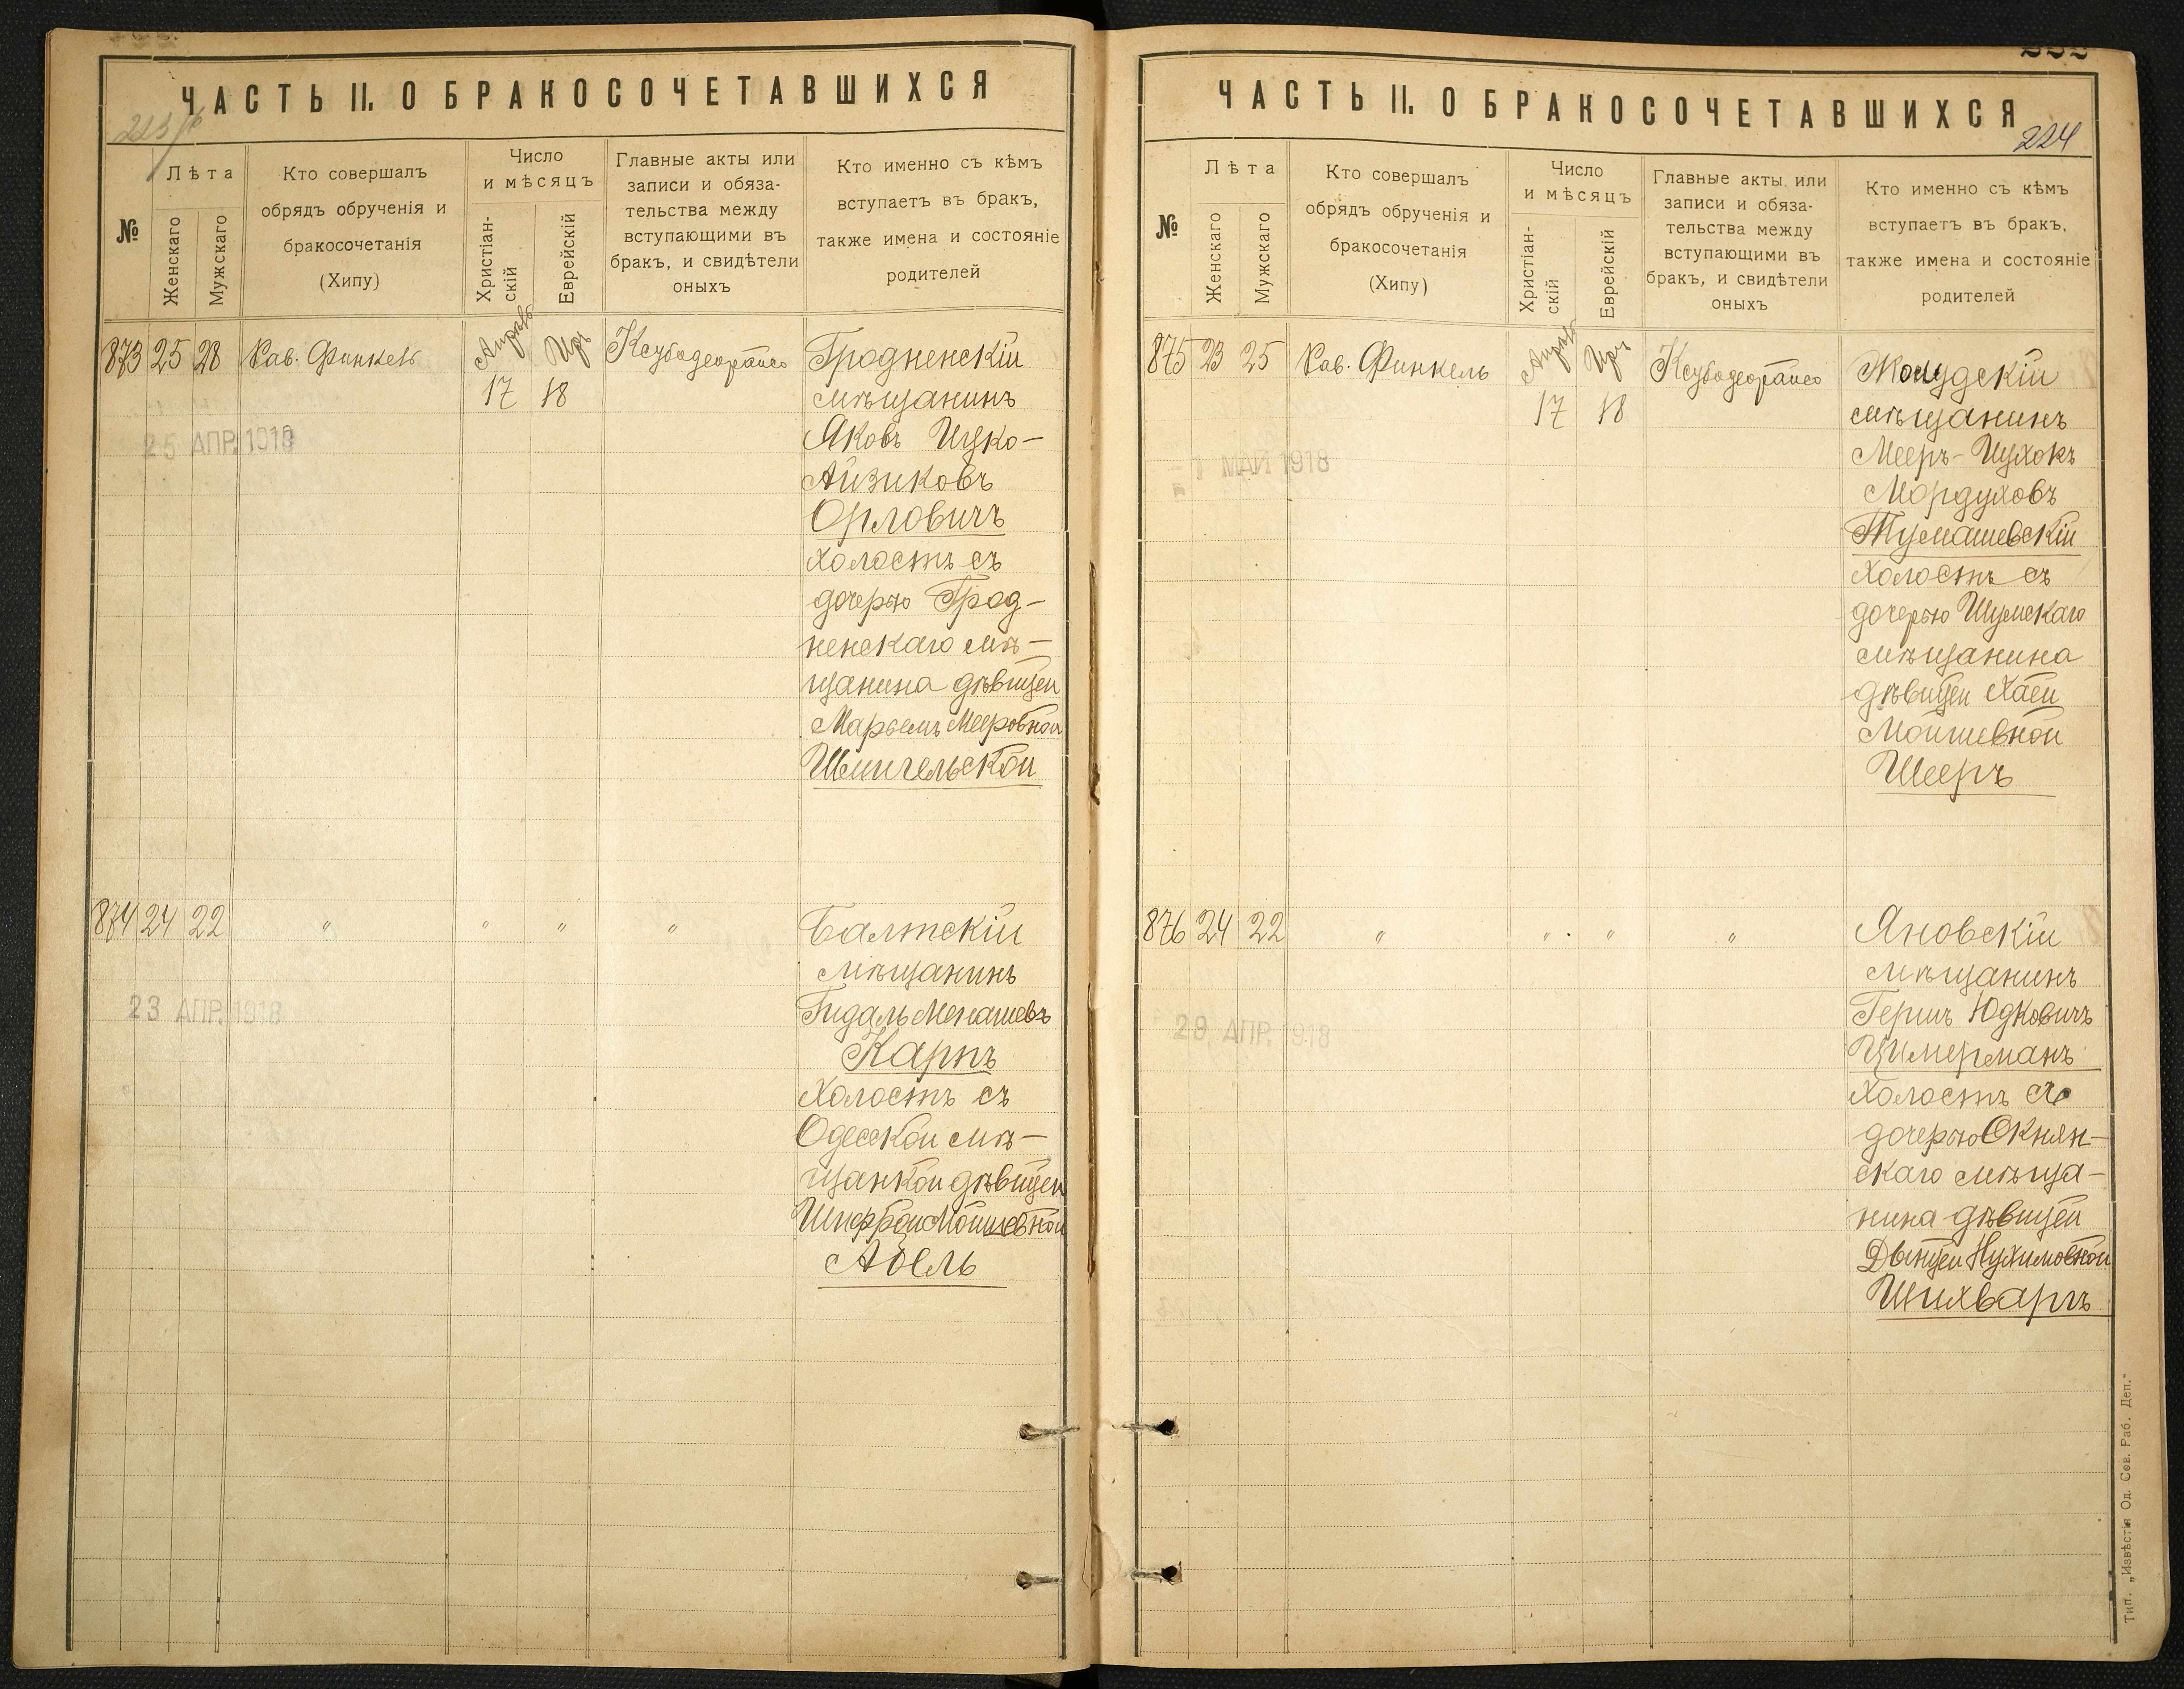 ЧАСТЬ II. О БРАКОСОЧЕТАВШИХСЯ
№
Лѣта
Женскаго
Мужскаго
Кто совершалъ
обрядъ обрученія и
бракосочетанія
(Хипу)
Число
и мѣсяцъ
Христіан-
скій
Еврейскій
Главные акты или
записи и обяза-
тельства между
вступающими въ
бракъ, и свидѣтели
оныхъ
Кто именно съ кѣмъ
вступаетъ въ бракъ,
также имена и состояніе
родителей
873 25 28 Рав. Финкель Апрѣль 17 Иръ 18
Гродненскій
мѣщанинъ
Яковъ Ицко-
Айзиковъ
Орловичъ
холостъ съ
дочерью Грод-
ненскаго мѣ-
щанина дѣвицей
Марьемъ Мееровной
Шмигельской
25 АПР. 1918
874 24 22 " " " "
Балтскій
мѣщанинъ
Гидаль Менашевъ
Карпъ
холостъ съ
Одесской мѣ-
щанкой дѣвицей
Шифрой Мошевной
23 АПР. 1918
ЧАСТЬ II. О БРАКОСОЧЕТАВШИХСЯ
224
№
Лѣта
Женскаго
Мужскаго
Кто совершалъ
обрядъ обрученія и
бракосочетанія
(Хипу)
Число
и мѣсяцъ
Христіан-
скій
Еврейскій
Главные акты или
записи и обяза-
тельства между
вступающими въ
бракъ, и свидѣтели
оныхъ
Кто именно съ кѣмъ
вступаетъ въ бракъ,
также имена и состояніе
родителей
875 23 25 Рав. Финкель Апрѣль 17 Иръ 18
мѣщанинъ
Мееръ-Цухокъ
Мордуховъ
Тумашевскій
холостъ съ
дочерью Шумскаго
мѣщанина
дѣвицей Хаей
Мойшевной
Шееръ
1 МАЙ 1918
876 24 22 " " " "
Яновскій
мѣщанинъ
Гершъ Юдковичъ
Цимерманъ
холостъ съ
дочерью Окнян-
скаго мѣща-
нина дѣвицей
Двицей Нухимовной
Шихваргъ
28 АПР. 1918
Тип. „Извѣстія Од. Сов. Раб. Деп."